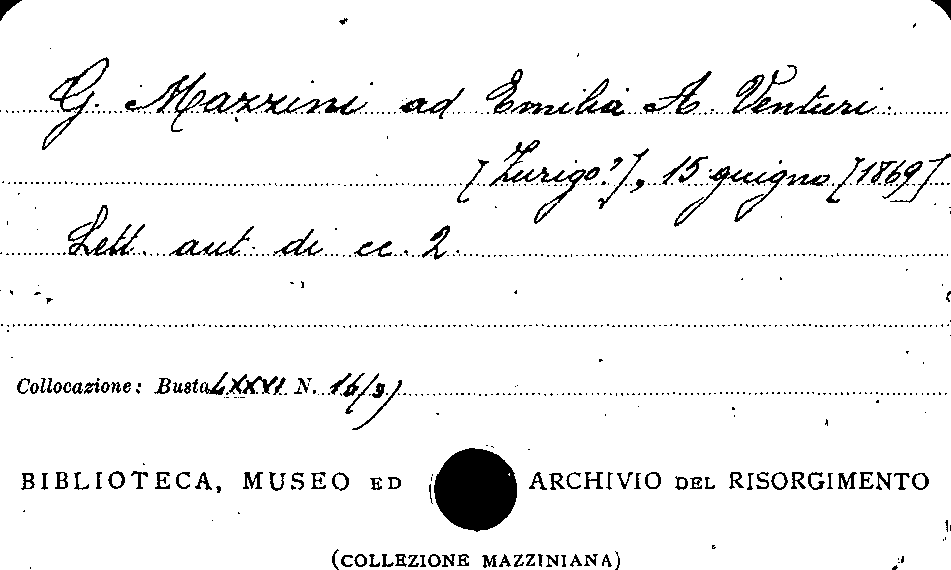 G. Mazzini ad Emilia A. Venturi.
[Zurigo?], 15 giugno [1869]
Lett. aut. di cc. 2.
Collocazione: Busta LXXVI N. 16/3)
BIBLIOTECA, MUSEO ED ARCHIVIO DEL RISORGIMENTO
(COLLEZIONE MAZZINIANA)